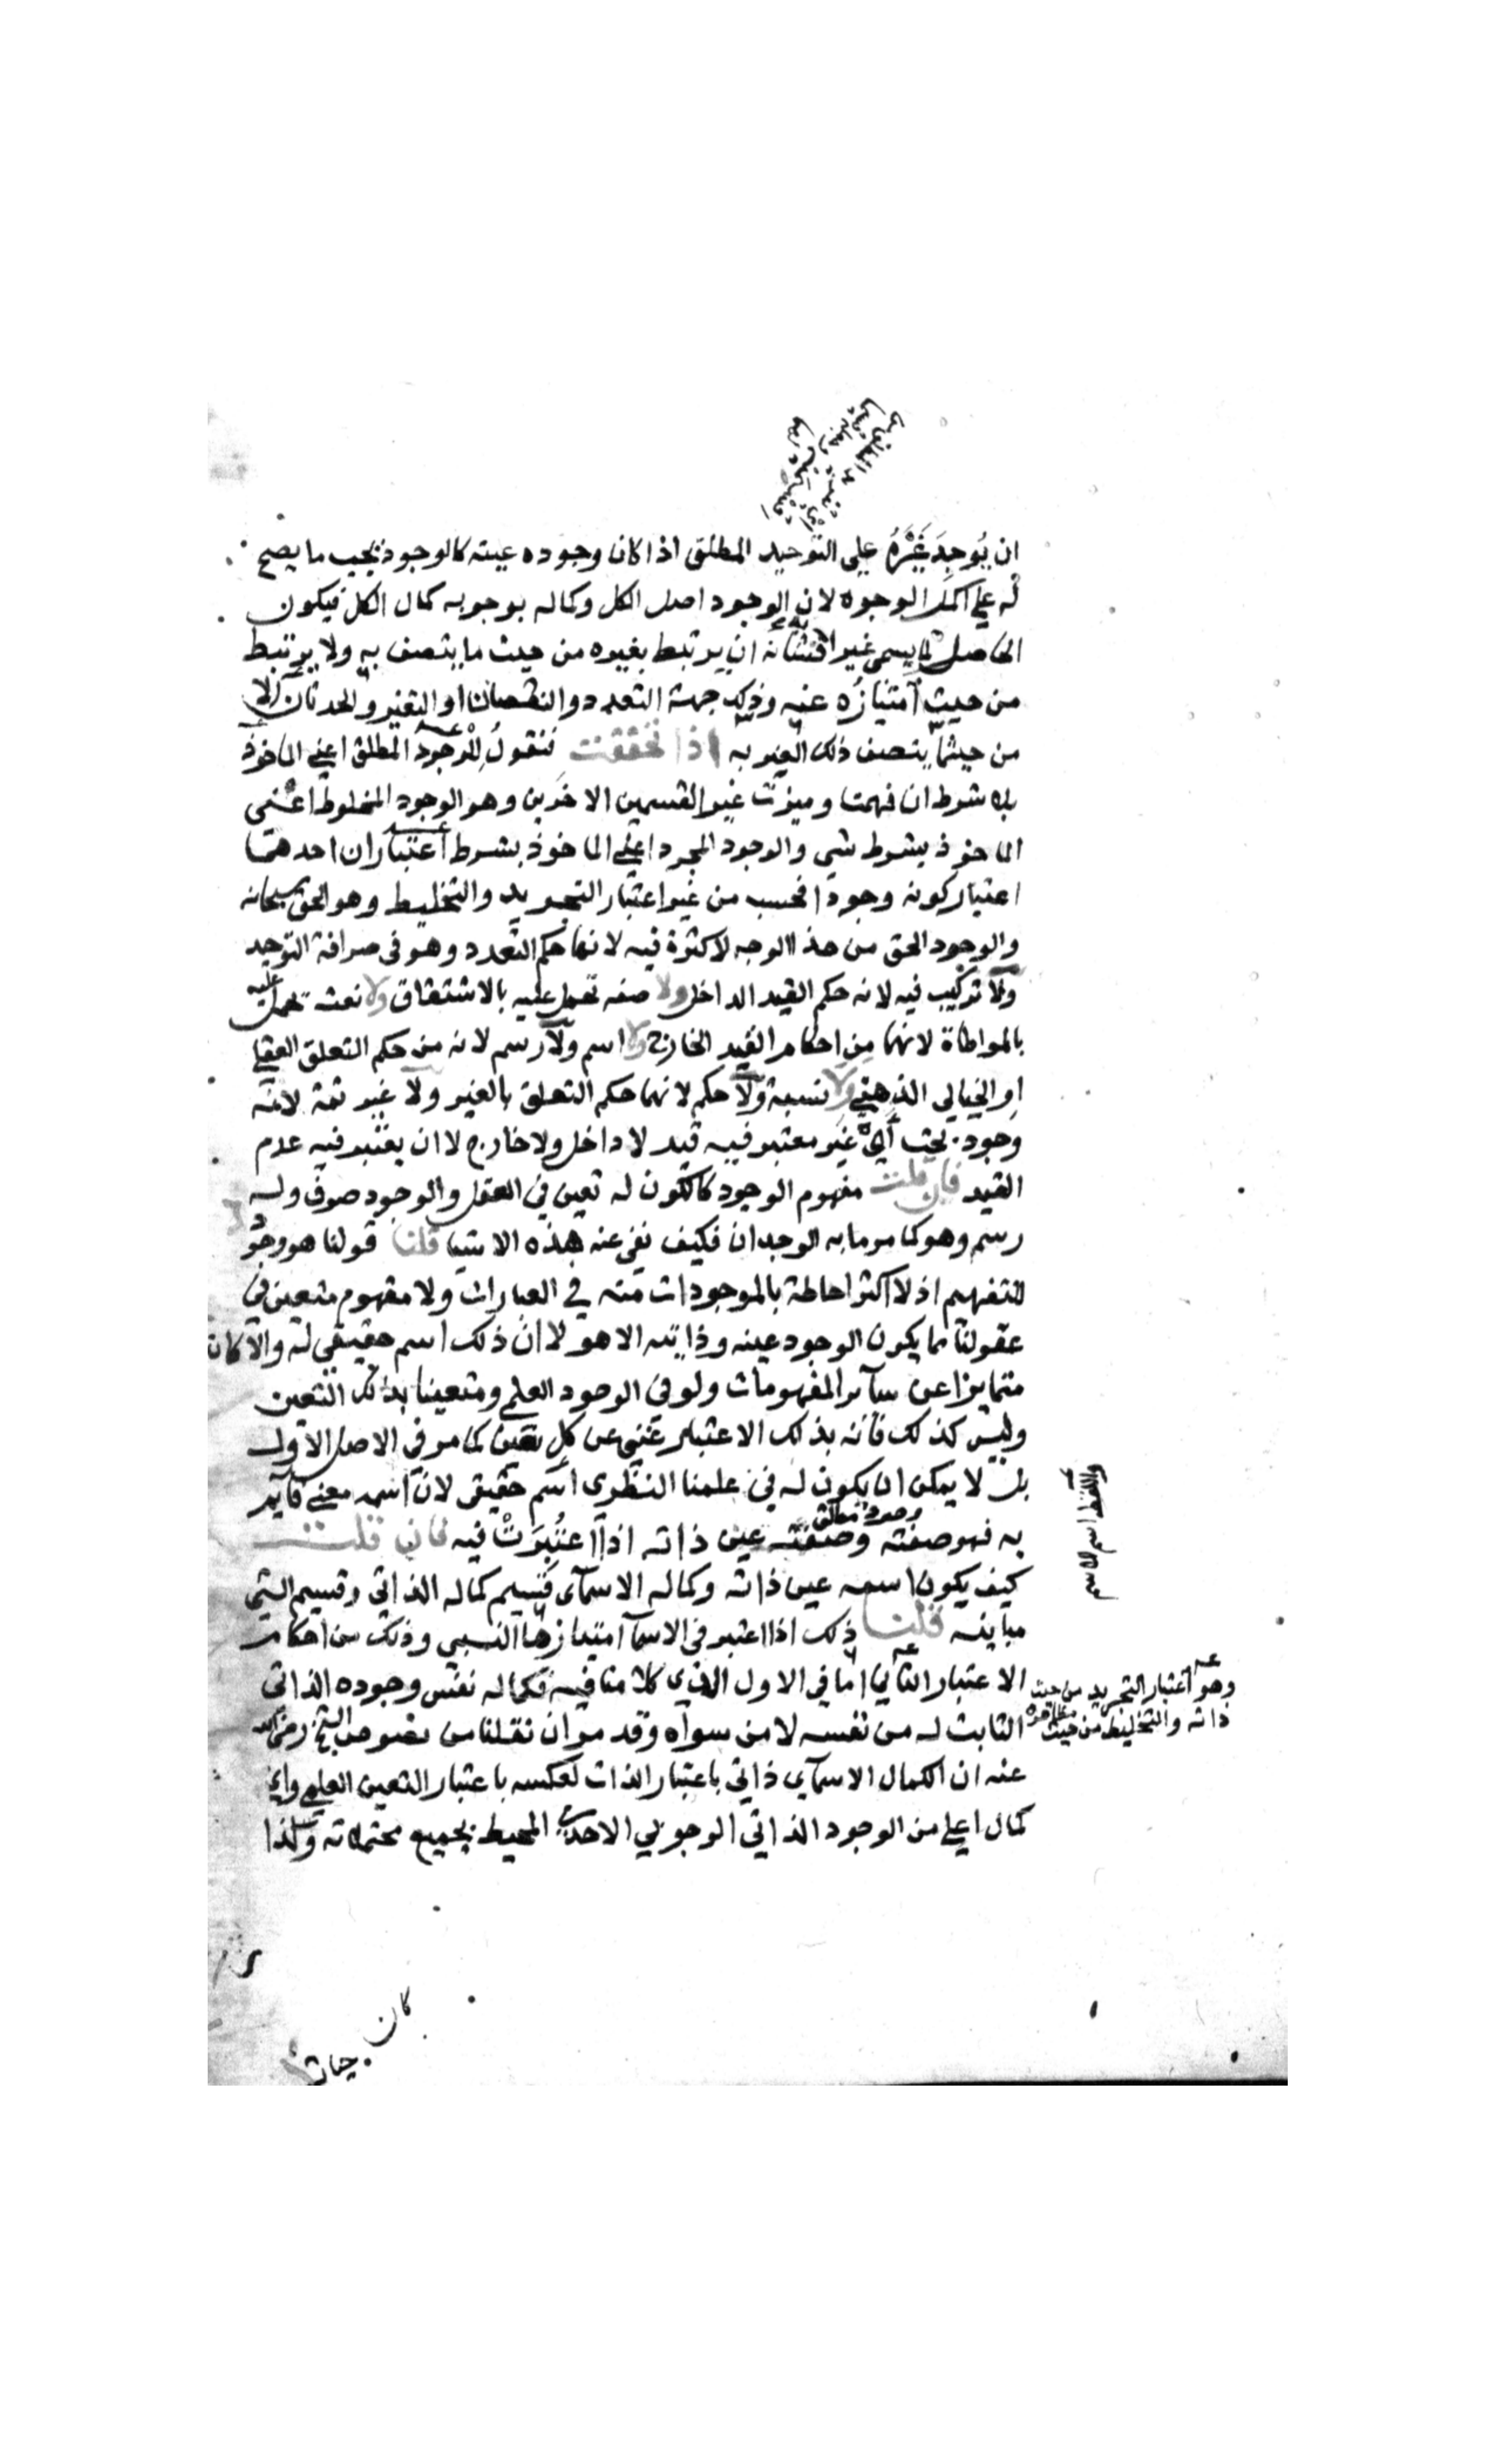 ان يُوجِدَ غَيْرَهُ على التوحيد المطلق اذا كان وجوده عينه كالوجود يجب ما يصح
له على اكمل الوجوه لان الوجود اصل الكل وكماله بوجوبه كمال الكل فيكون
الحاصل لما يسمى غيرا ان يرتبط بغيره من حيث ما يتصف به ولا يرتبط
من حيث امتيازه عنه وذلك جهة التعدد والنقصان او التغير والحدثان الا
من حيث يتصف ذلك الغير به اذا تحققت فنقول للوجود المطلق اعني الماخوذ
بلا شرط ان فهمت وميزت غير القسمين الاخرين وهو الوجود المخلوط اعنى
الماخوذ بشرط شي والوجود المجرد اعني الماخوذ بشرط اعتباران احدهما
اعتبار كونه وجودا فحسب من غير اعتبار التجريد والتخليط وهو الحق سبحانه
والوجود الحق من هذا الوجه لا كثرة فيه لانها حكم التعدد وهو في صرافة التوحيد
ولا تركيب فيه لانه حكم القيد الداخل ولا صفه تحمل عليه بالاشتقاق ولا نعت تحمل عليه
بالمواطاة لانهما من احكام القيد الخارج ولا اسم ولا رسم لانه من حكم التعلق العقلي
او الخيالي الذهني ولا نسبة ولا حكم لانهما حكم التعلق بالغير ولا غير ثمة لانه
وجود بحت اي غير معتبر فيه قيد لا داخل ولا خارج لا ان يعتبر فيه عدم
القيد فان قلت مفهوم الوجود كالكون له تعين في العقل والوجود صرف وله
رسم وهو كما مر ما به الوجدان فكيف نفى عنه هذه الاشيا قلنا قولنا هو وجود
للتفهيم اذ لا اكثر احاطة بالموجودات منه في العبارات ولا مفهوم متعين في
عقولنا مما يكون الوجود عينه وذاتيه الا هو لا ان ذلك اسم حقيقي له والا كان
متمايزا عن سآئر المفهومات ولو في الوجود العلمي ومتعينا بذلك التعين
وليس كذلك فانه بذلك الاعتبار غني عن كل تعين كما مر في الاصل الاول
بل لا يمكن ان يكون له في علمنا النظري اسم حقيقي لان اسمه معنى قآيم
به فهو صفته وصفته عين ذاته اذا اعتُبِرَتْ فيه فان قلت
كيف يكون اسمه عين ذاته وكماله الاسمآى قسيم كماله الذاتي وقسيم الشي
مباينه قلنا ذلك اذا اعتبر في الاسمآ امتيازها النسبي وذلك من احكام
الاعتبار الثاني اما في الاول الذي كلامنا فيه فكماله نفس وجوده الذاتي
الثابت له من نفسه لا من سواه وقد مر ان نقلنا من نصوص الشيخ رضي الله
عنه ان الكمال الاسمآي ذاتي باعتبار الذات لعكسه باعتبار التعين العلمي واي
كمال اعلى من الوجود الذاتي الوجوبي الاحدي المحيط بجميع محتملاته ولذا
واللفظ اسم الاسم
وهو اعتبار التجريد من حيث
ذاته والتخليط من حيث
كان